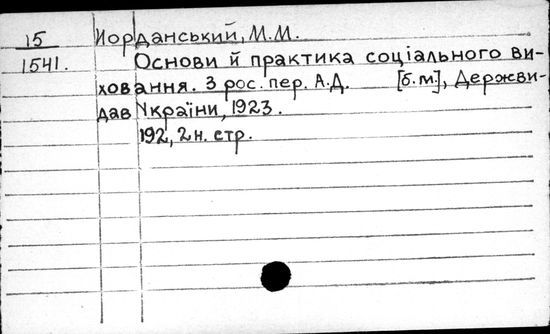 15 Иорданський, М.М.
1541. Основи й практика соціального ви-
ховання. З рос. пер. А.Д. [б.м], Держви-
дав України, 1923.
192, 2 н. стр.